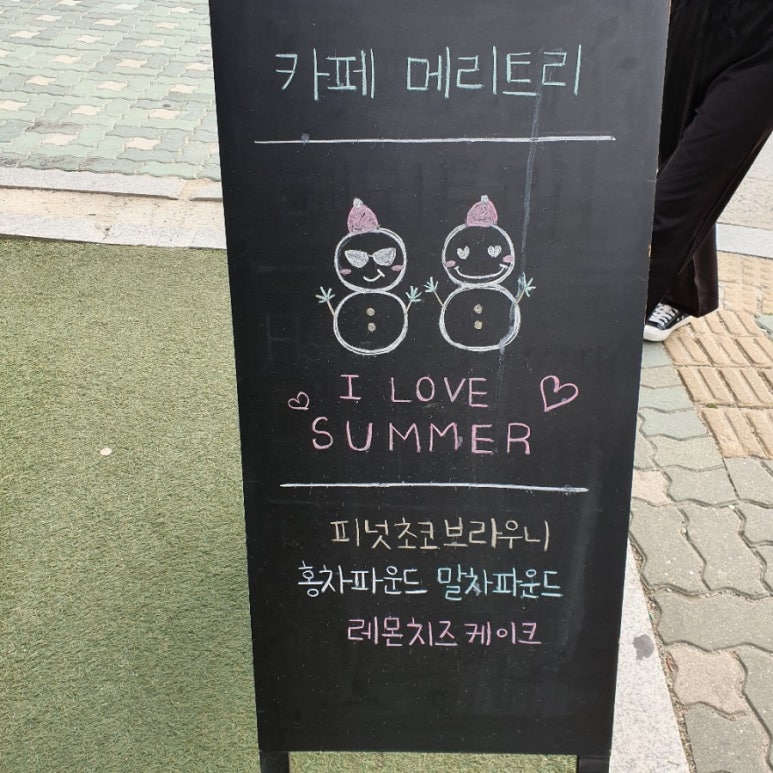 카페 메리트리
I LOVE
SUMMER
피넛초코보라우니
홍차파운드 말차파운드
레몬치즈케이크